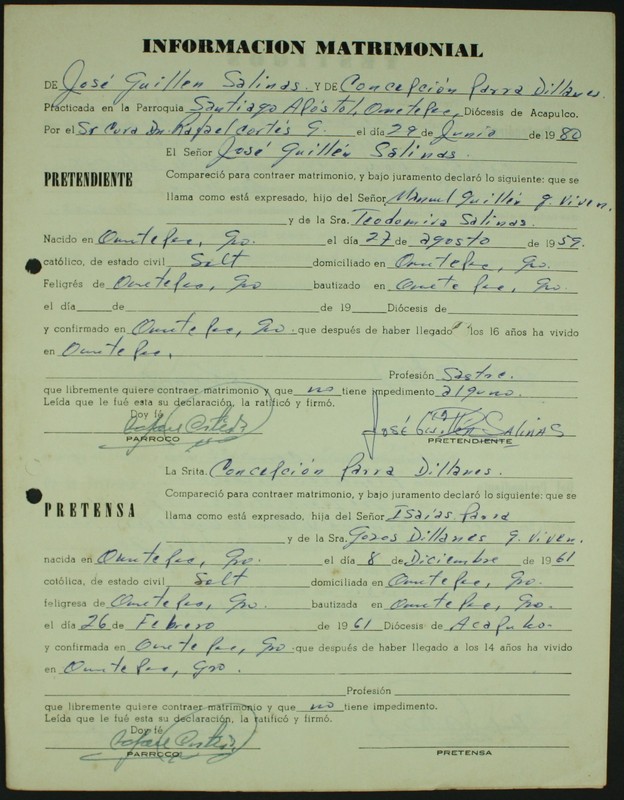 INFORMACION MATRIMONIAL
DE José Guillen Salinas. Y DE Concepción Parra Dillanes.
Practicada en la Parroquia Santiago Apóstol, Ometepec, Diócesis de Acapulco.
Por el Sr Cura Dn. Rafael Cortés G. el día 29 de Junio de 1980
El Señor José Guillén Salinas.
PRETENDIENTE
Compareció para contraer matrimonio, y bajo juramento declaró lo siguiente: que se
llama como está expresado, hijo del Señor Manuel Guillén q. viven.
y de la Sra. Teodomira Salinas.
Nacido en Ometepec, Gro. el día 27 de agosto de 1959.
católico, de estado civil Solt domiciliado en Ometepec, Gro.
Feligrés de Ometepec, Gro bautizado en Ometepec, Gro.
el día de de 19 Diócesis de
y confirmado en Ometepec, Gro. que después de haber llegado a los 16 años ha vivido
en Ometepec,
Profesión Sastre.
que libremente quiere contraer matrimonio y que no tiene impedimento alguno.
Leída que le fué esta su declaración, la ratificó y firmó.
Doy fé
PARROCO
JOSÉ SALINAS
PRETENDIENTE
La Srita. Concepción Parra Dillanes.
PRETENSA
Compareció para contraer matrimonio, y bajo juramento declaró lo siguiente: que se
llama como está expresado, hija del Señor Isaías Parra
y de la Sra. Dillanes q. viven.
nacida en Ometepec, Gro. el día 8 de Diciembre de 1961
católica, de estado civil Solt domiciliada en Ometepec, Gro.
feligresa de Ometepec, Gro. bautizada en Ometepec, Gro.
el día 26 de Febrero de 1961 Diócesis de Acapulco.
y confirmada en Ometepec, Gro que después de haber llegado a los 14 años ha vivido
en Ometepec, Gro.
Profesión
que libremente quiere contraer matrimonio y que no tiene impedimento.
Leída que le fué esta su declaración, la ratificó y firmó.
Doy fé
PARROCO
PRETENSA